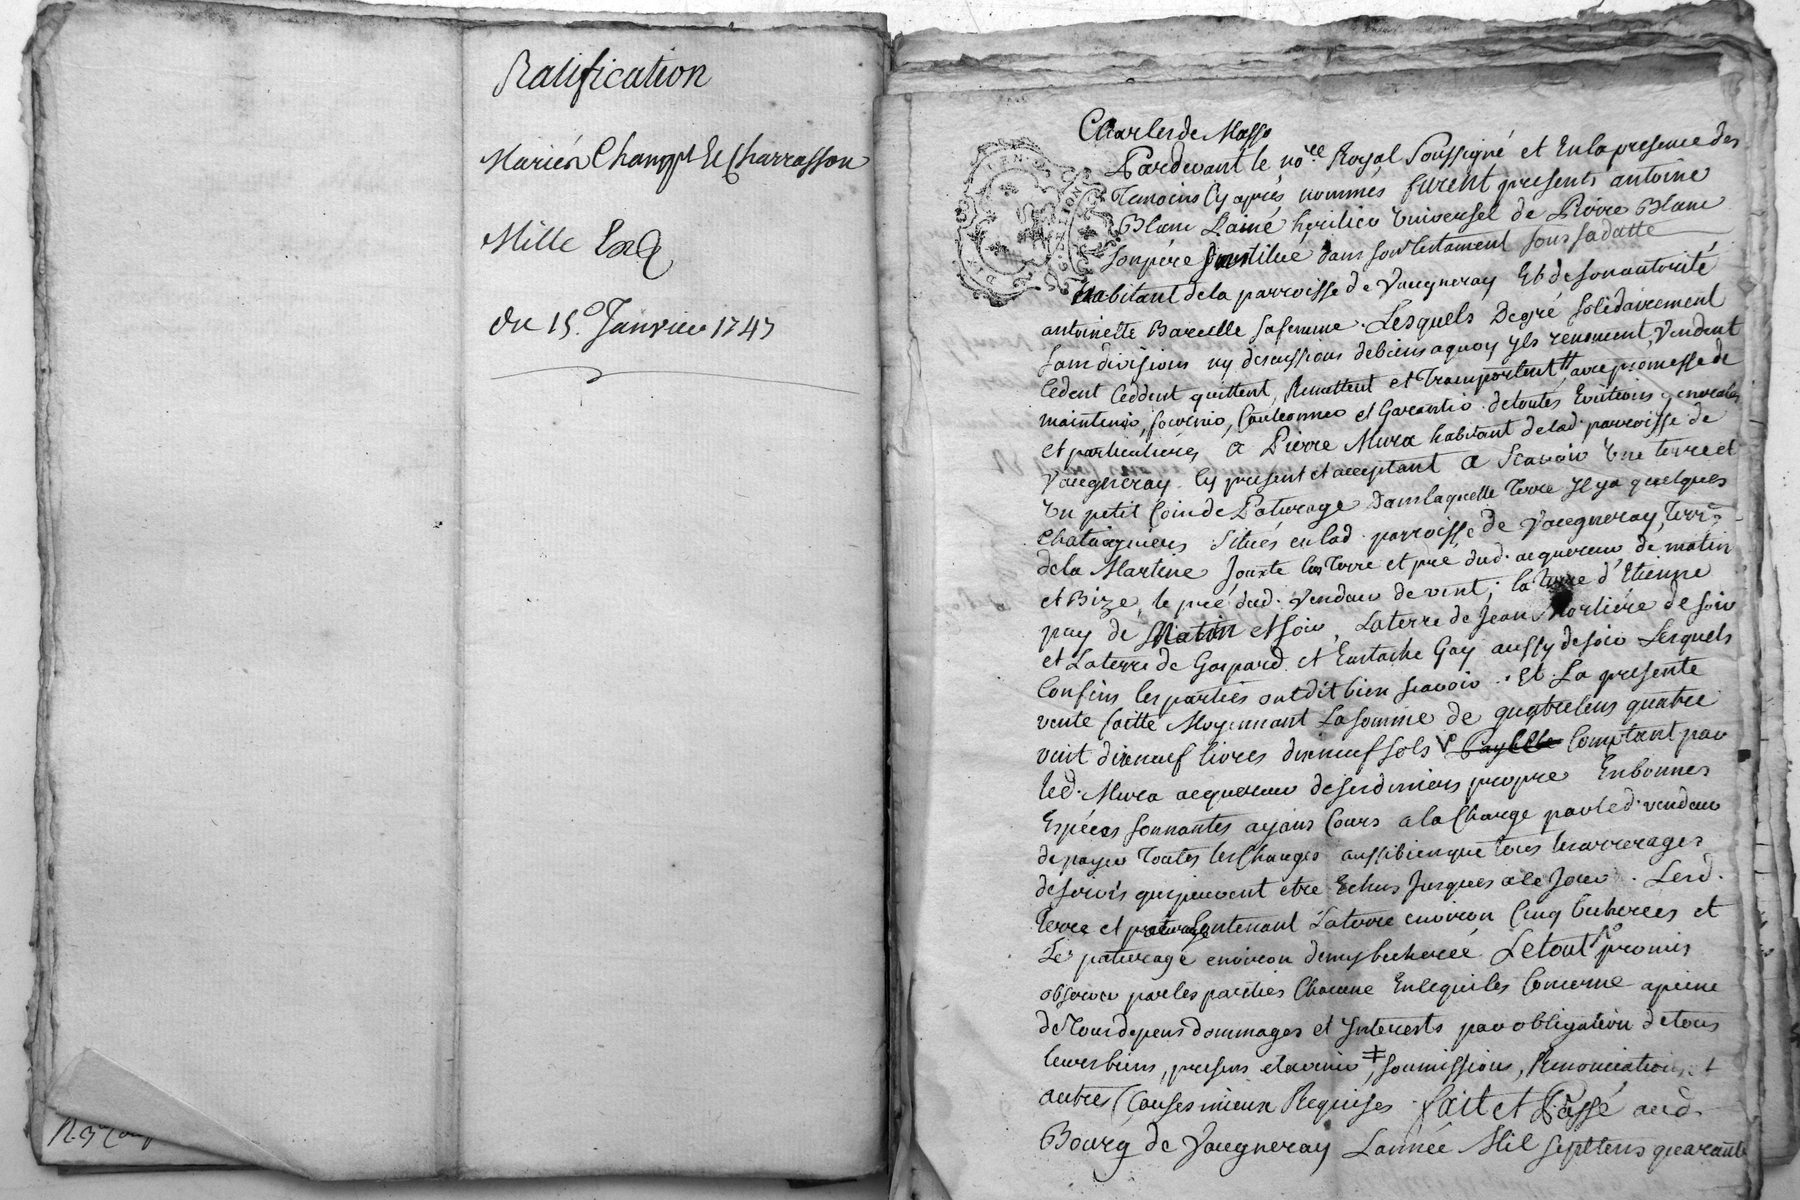 Ratification
Marién Champt & Charrasson
Mille
du 15e. Janvier 1747
Charles de Masso
Pardevant le nore. Royal Soussigné et En la presence des
Temoins Cy après nommés furent presents antoine
Blanc L'ainé heritier Universel de Pierre Blanc
Son père Institué dans son testament sous sa datte
habitant de la parroisse de Vaugneray Et de son autorité
antoinette Barcelle sa femme. Lesquels De gré solidairement
sans divisions ny discussions de biens a quoy yls renoncent, Vendent
Cedent Ceddent quittent, Remettent et Transportent avec promesse de
maintenir, fournir, Cautionner et Garantir de toutes Evictions generales
et particulieres, a Pierre Mura habitant de lad. parroisse de
Vaugneray. Cy present et acceptant a Scavoir Une terre et
Un petit Coin de Paturage Dans laquelle Terre Il y a quelques
chataigniers situés en lad. parroisse de Vaugneray, Terre.
de la Martine Jouxte les Terre et pré dud. acquereur de matin
et Bize, le pré dud. Vendeur de vent; la Terre d'Etienne
pay de Matin et soir, La terre de Jean Mortière de soir
et La terre de Gaspard et Eustache Gay aussy de soir Lesquels
Confins les parties ont dit bien scavoir. Et La presente
vente faitte Moyennant La somme de quatre Cens quatre
vint dixneuf livres dixneuf sols Comptant par
led. Mura acquereur de ses deniers propre En bonnes
Espèces sonnantes ayans Cours a la Charge par led. vendeur
de payer Toutes les Charges aussi bien que tous les arrerages
de servis qui peuvent etre Echus Jusques a Ce Jour. Lesd.
Terre et paturage Contenant La terre environ Cinq bicherées et
Le paturage environ demy bicherée Le tout promis
observer par les parties Chacune En ce qui les Concerne a peine
de Tous depens dommages et Interests par obligation de tous
leurs biens, presens et avenir ‡, soumissions, Renonciations et
autres Clauses mieux Requises. fait et Passé aud.
Bourg de Vaugneray L'année Mil sept Cens quarante